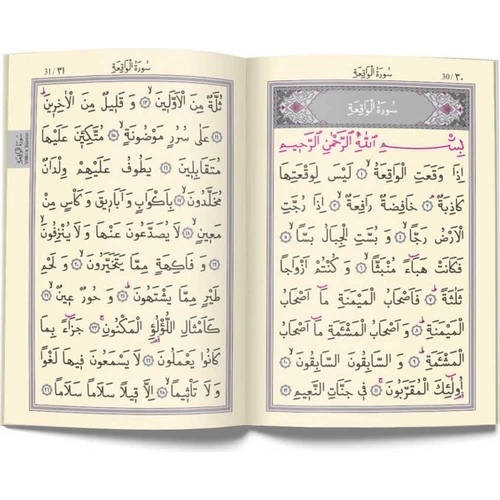 سُورَةُ الْوَاقِعَةِ 30/٣٠
سُورَةُ الْوَاقِعَةِ
بِسْمِ اللّٰهِ الرَّحْمٰنِ الرَّحِيمِ
اِذَا وَقَعَتِ الْوَاقِعَةُ ﴿١﴾ لَيْسَ لِوَقْعَتِهَا
كَاذِبَةٌ ﴿٢﴾ خَافِضَةٌ رَافِعَةٌ ﴿٣﴾ اِذَا رُجَّتِ
الْاَرْضُ رَجًّا ﴿٤﴾ وَ بُسَّتِ الْجِبَالُ بَسًّا ﴿٥﴾
فَكَانَتْ هَبَاءً مُنْبَثًّا ﴿٦﴾ وَ كُنْتُمْ اَزْوَاجًا
ثَلٰثَةً ﴿٧﴾ فَاَصْحَابُ الْمَيْمَنَةِ مَا اَصْحَابُ
الْمَيْمَنَةِ ﴿٨﴾ وَ اَصْحَابُ الْمَشْـَٔمَةِ مَا اَصْحَابُ
الْمَشْـَٔمَةِ ﴿٩﴾ وَ السَّابِقُونَ السَّابِقُونَ ﴿١٠﴾
اُولٰئِكَ الْمُقَرَّبُونَ ﴿١١﴾ فِي جَنَّاتِ النَّعِيمِ ﴿١٢﴾
سُورَةُ الْوَاقِعَةِ 31/٣١
ثُلَّةٌ مِنَ الْاَوَّلِينَ ﴿١٣﴾ وَ قَلِيلٌ مِنَ الْاٰخِرِينَ
﴿١٤﴾ عَلٰى سُرُرٍ مَوْضُونَةٍ ﴿١٥﴾ مُتَّكِـِٔينَ عَلَيْهَا
مُتَقَابِلِينَ ﴿١٦﴾ يَطُوفُ عَلَيْهِمْ وِلْدَانٌ
مُخَلَّدُونَ ﴿١٧﴾ بِاَكْوَابٍ وَ اَبَارِيقَ وَ كَاْسٍ مِنْ
مَعِينٍ ﴿١٨﴾ لَا يُصَدَّعُونَ عَنْهَا وَ لَا يُنْزِفُونَ
﴿١٩﴾ وَ فَاكِهَةٍ مِمَّا يَتَخَيَّرُونَ ﴿٢٠﴾ وَ لَحْمِ
طَيْرٍ مِمَّا يَشْتَهُونَ ﴿٢١﴾ وَ حُورٌ عِينٌ ﴿٢٢﴾
كَاَمْثَالِ اللُّؤْلُؤِ الْمَكْنُونِ ﴿٢٣﴾ جَزَاءً بِمَا
كَانُوا يَعْمَلُونَ ﴿٢٤﴾ لَا يَسْمَعُونَ فِيهَا لَغْوًا
وَ لَا تَاْثِيمًا ﴿٢٥﴾ اِلَّا قِيلًا سَلَامًا سَلَامًا ﴿٢٦﴾
سُورَةُ الْوَاقِعَةِ